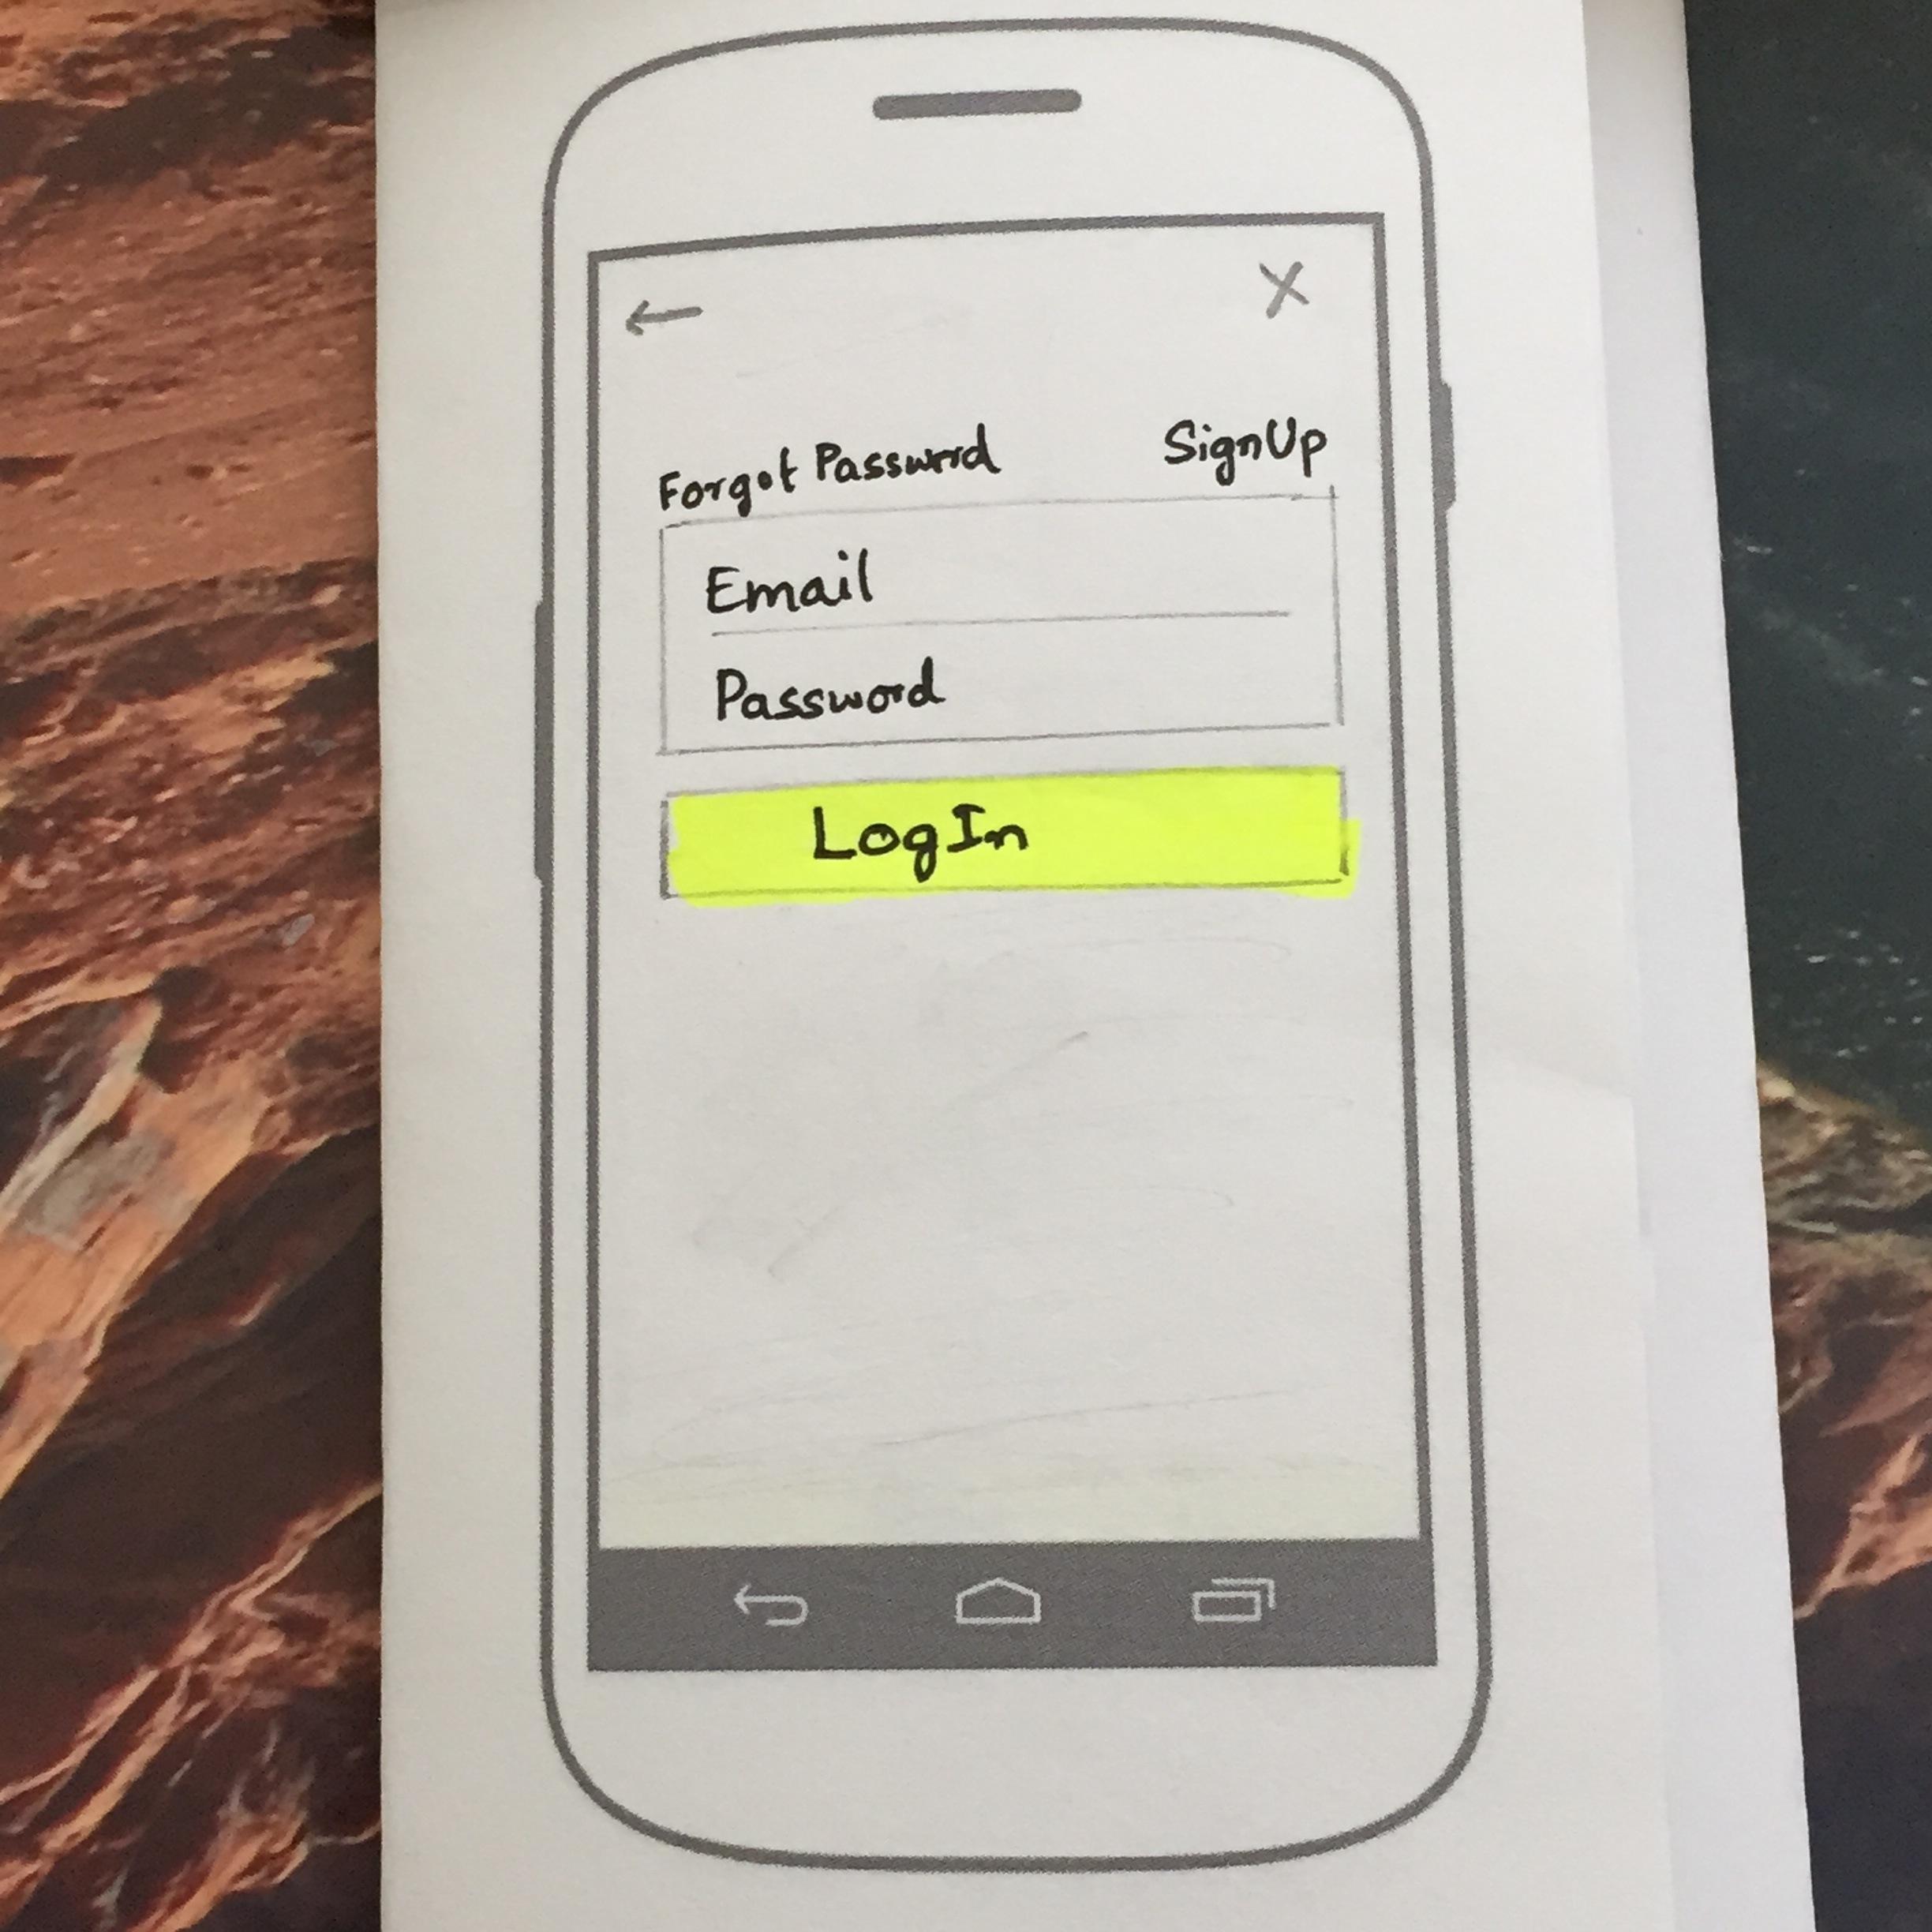 Forgot Password SignUp
Email
Password
LogIn